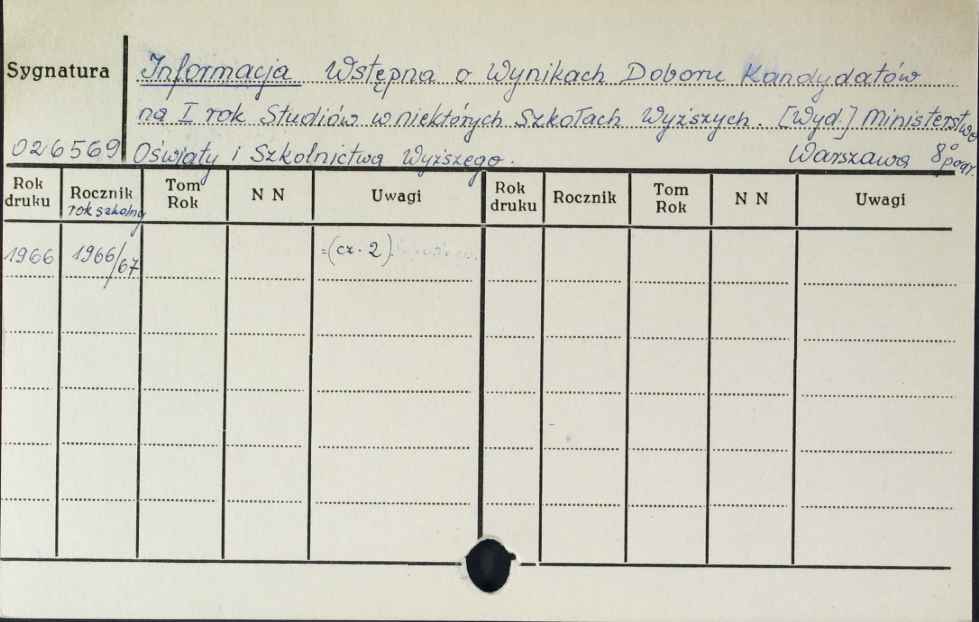 Sygnatura Informacja Wstępna o Wynikach Doboru Kandydatów
na I rok Studiów w niektórych Szkołach Wyższych. [Wyd.] Ministerstwo
026569 Oświaty i Szkolnictwa Wyższego. Warszawa 8°
Rok druku Rocznik rok szkolny Tom Rok N N Uwagi Rok druku Rocznik Tom Rok N N Uwagi
1966 1966/67 =(cz. 2)